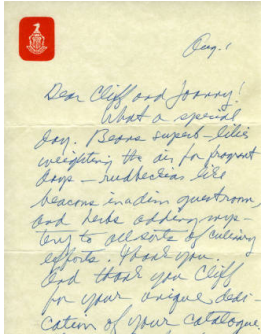 Aug. 1
Dear Cliff and Joanny!
What a special
day. Beans superb - lilies
weighting the air for fragrant
days - rudbeckias like
beacons in a dim guestroom,
and herbs adding mys-
tery to all sorts of culinary
efforts. Thank you.
And thank you Cliff
for your unique dedi-
cation of your catalogue